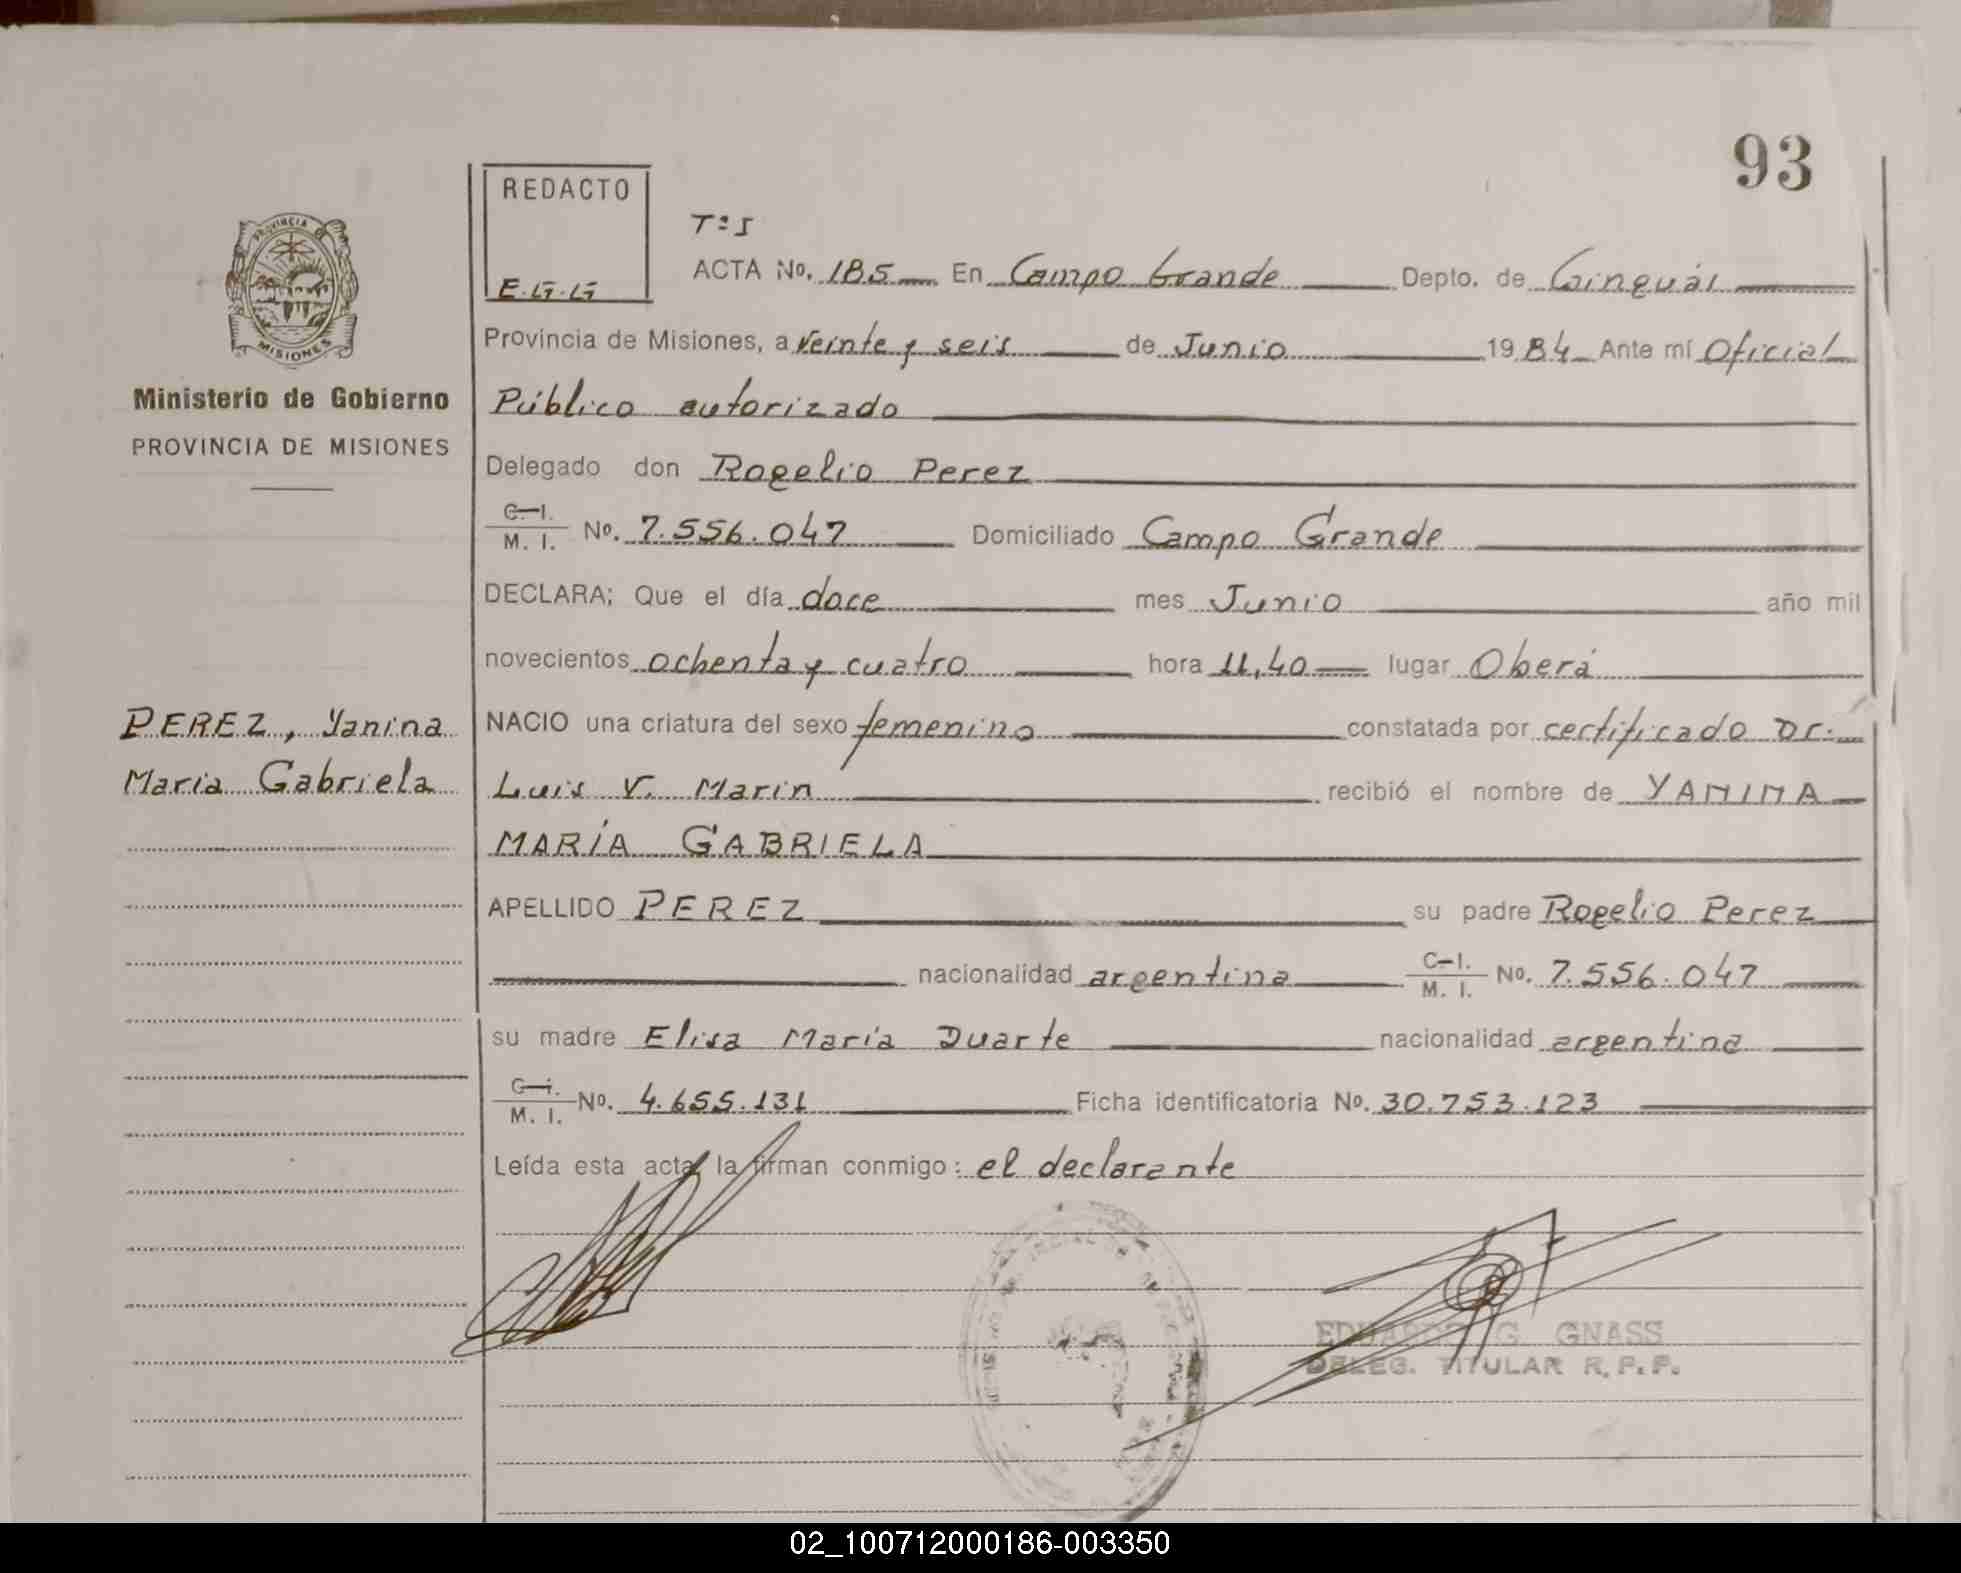 93
REDACTO
E.G.G
Tº I
ACTA No. 185 En Campo Grande Depto. de Cainguás
Provincia de Misiones, a veinte y seis de Junio 1984 Ante mí Oficial
Público autorizado
Delegado don Rogelio Perez
C.I. M. I. No. 7.556.047 Domiciliado Campo Grande
DECLARA; Que el día doce mes Junio año mil
novecientos ochenta y cuatro hora 11,40 lugar Oberá
NACIO una criatura del sexo femenino constatada por certificado Dr.
Luis V. Marin recibió el nombre de YANINA
MARÍA GABRIELA
APELLIDO PEREZ su padre Rogelio Perez
nacionalidad argentina C-I. M. I. No. 7.556.047
su madre Elisa María Duarte nacionalidad argentina
C-i. M. I. No. 4.655.131 Ficha identificatoria No. 30.753.123
Leída esta acta, la firman conmigo: el declarante
PROVINCIA D
MISIONES
Ministerio de Gobierno
PROVINCIA DE MISIONES
PEREZ, Yanina
María Gabriela
EDUARDO G. GNASS
DELEG. TITULAR R.P.P.
02_100712000186-003350